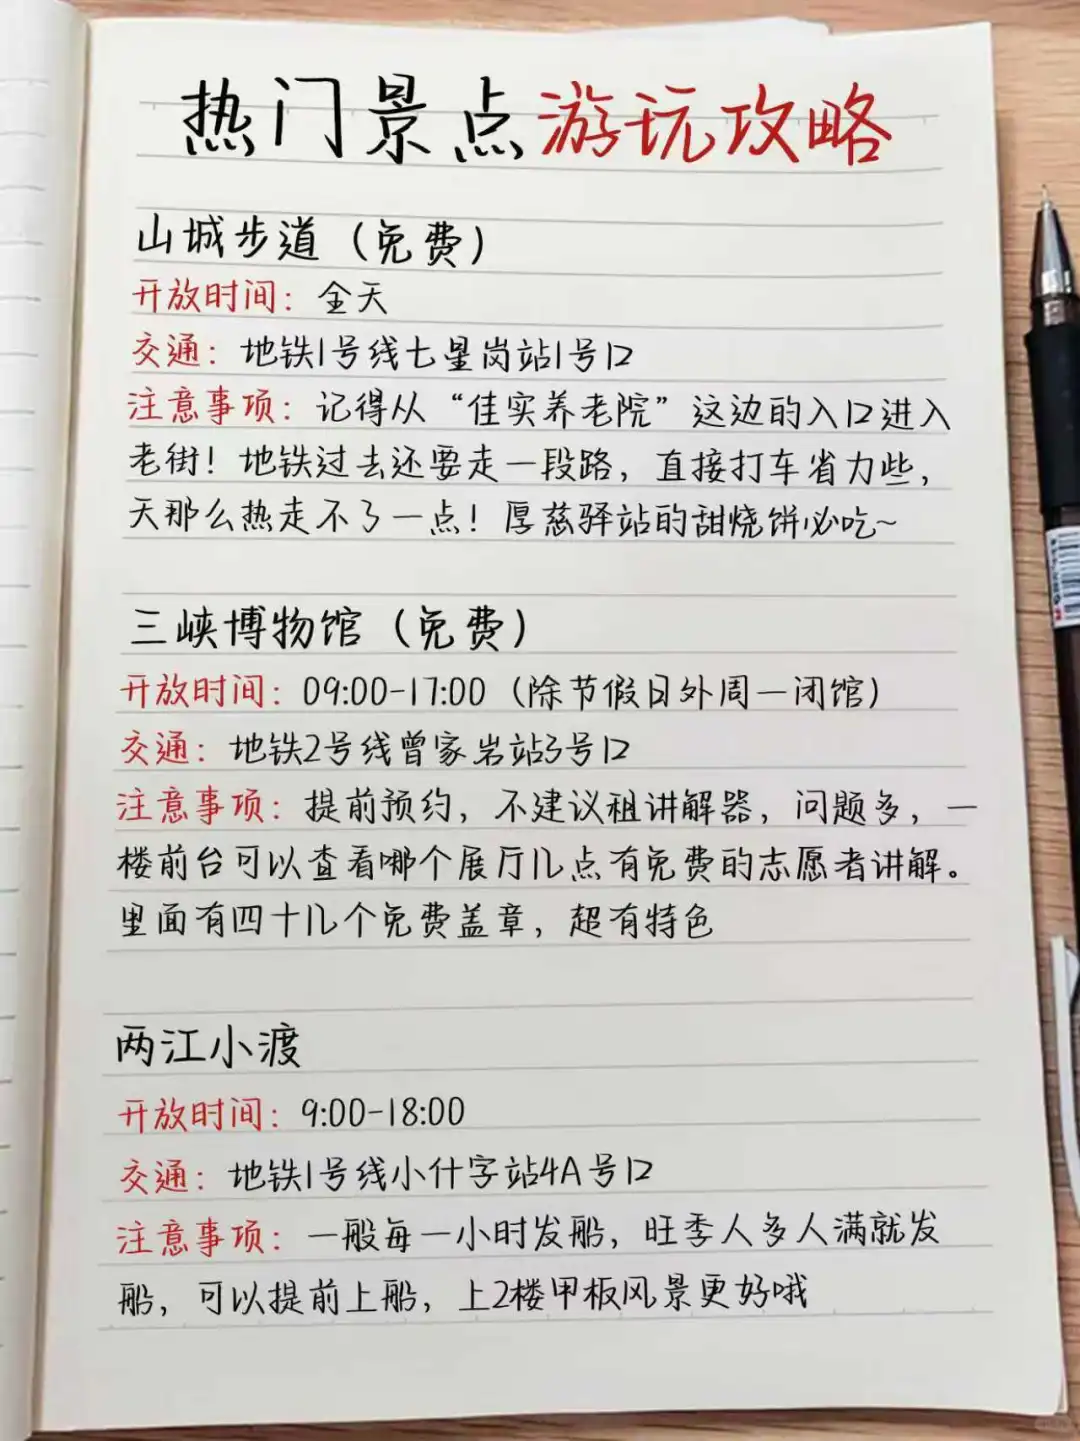 热门景点游玩攻略
山城步道（免费）
开放时间：全天
交通：地铁1号线七星岗站1号口
注意事项：记得从“佳实养老院”这边的入口进入
老街！地铁过去还要走一段路，直接打车省力些，
天那么热走不了一点！厚慈驿站的甜烧饼必吃~
三峡博物馆（免费）
开放时间：09:00-17:00（除节假日外周一闭馆）
交通：地铁2号线曾家岩站3号口
注意事项：提前预约，不建议租讲解器，问题多，一
楼前台可以查看哪个展厅几点有免费的志愿者讲解。
里面有四十几个免费盖章，超有特色
两江小渡
开放时间：9:00-18:00
交通：地铁1号线小什字站4A号口
注意事项：一般每一小时发船，旺季人多人满就发
船，可以提前上船，上2楼甲板风景更好哦